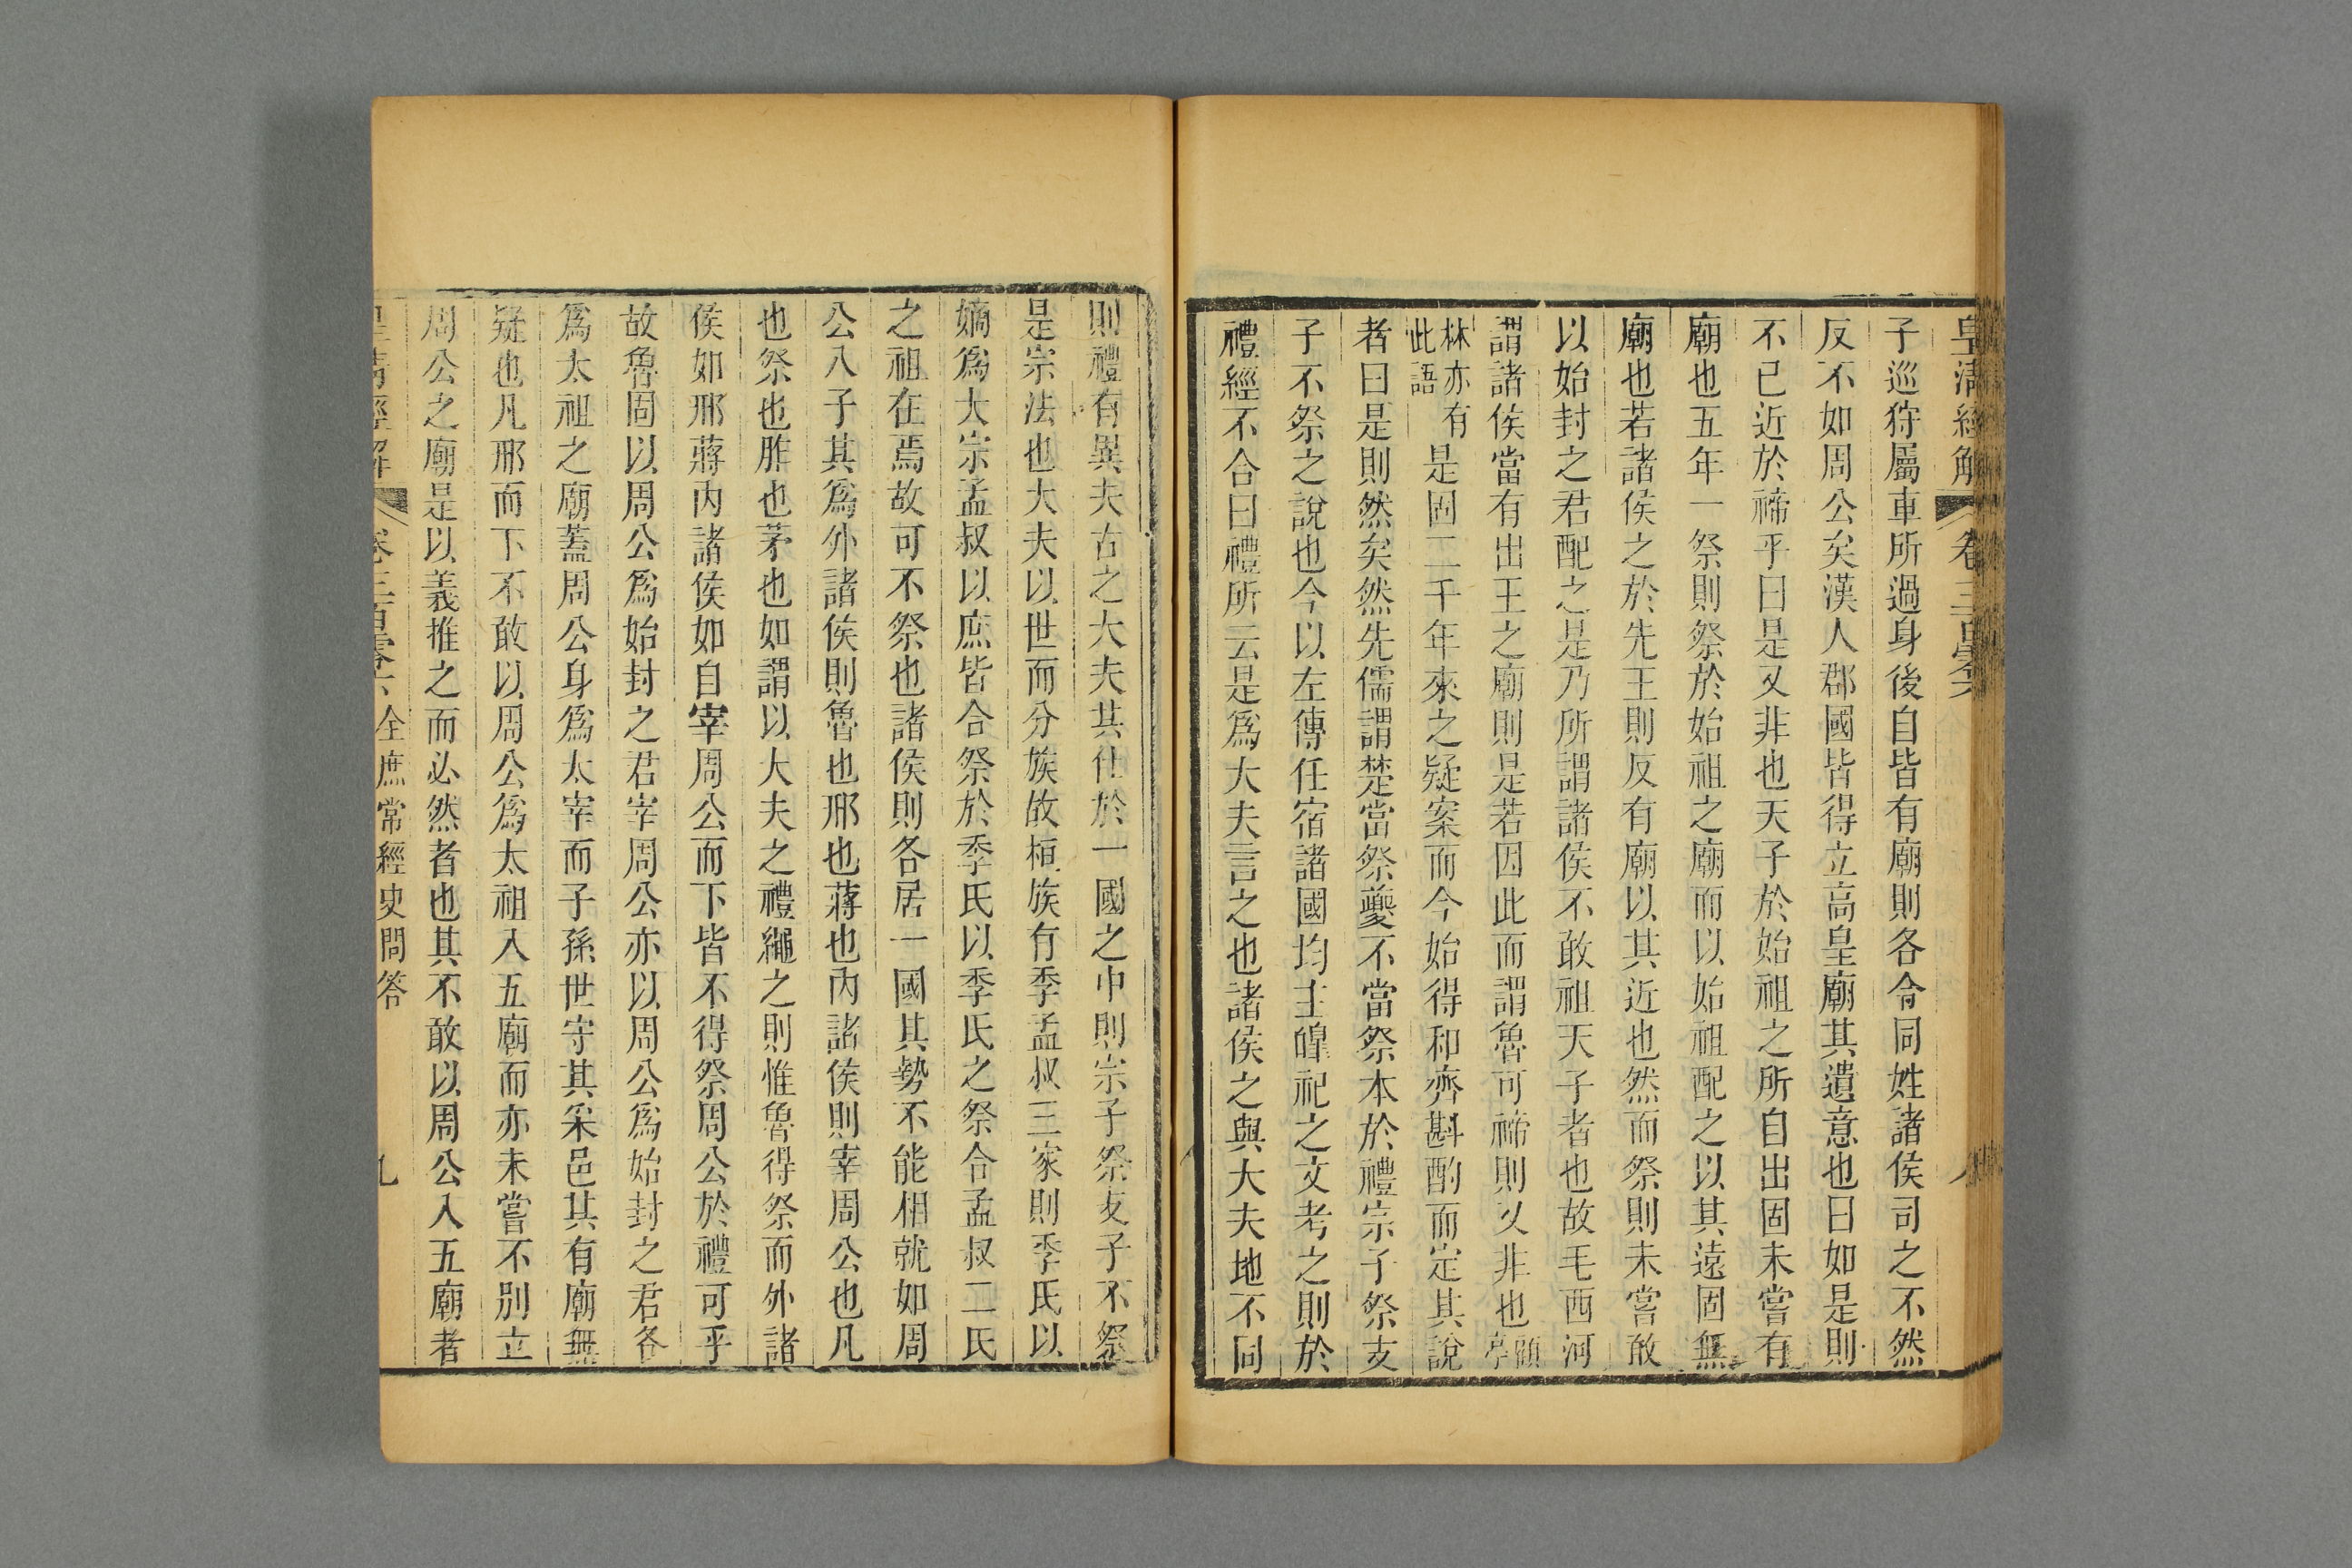 皇清經解 卷三百零六 八
子巡狩屬車所過身後自皆有廟則各令同姓諸侯司之不然
反不如周公矣漢人郡國皆得立高皇廟其遺意也曰如是則
不已近於禘乎曰是又非也天子於始祖之所自出固未嘗有
廟也五年一祭則祭於始祖之廟而以始祖配之以其遠固無
廟也若諸侯之於先王則反有廟以其近也然而祭則未嘗敢
以始封之君配之是乃所謂諸侯不敢祖天子者也故毛西河
謂諸侯當有出王之廟則是若因此而謂魯可禘則又非也顧亭
林亦有此語是固二千年來之疑案而今始得和齊斟酌而定其說
者曰是則然矣然先儒謂楚當祭夔不當祭本於禮宗子祭支
子不祭之說也今以左傳任宿諸國均主皞祀之文考之則於
禮經不合曰禮所云是爲大夫言之也諸侯之與大夫地不同
則禮有異夫古之大夫其仕於一國之中則宗子祭支子不祭
是宗法也大夫以世而分族故桓族有季孟叔三家則季氏以
嫡爲大宗孟叔以庶皆合祭於季氏以季氏之祭合孟叔二氏
之祖在焉故可不祭也諸侯則各居一國其勢不能相就如周
公八子其爲外諸侯則魯也邢也蔣也內諸侯則宰周公也凡
也祭也胙也茅也如謂以大夫之禮繩之則惟魯得祭而外諸
侯如邢蔣內諸侯如自宰周公而下皆不得祭周公於禮可乎
故魯固以周公爲始封之君宰周公亦以周公爲始封之君各
爲太祖之廟蓋周公身爲太宰而子孫世守其采邑其有廟無
疑也凡邢而下不敢以周公爲太祖入五廟而亦未嘗不別立
周公之廟是以義推之而必然者也其不敢以周公入五廟者
皇清經解 卷三百零六 全庶常經史問答 九